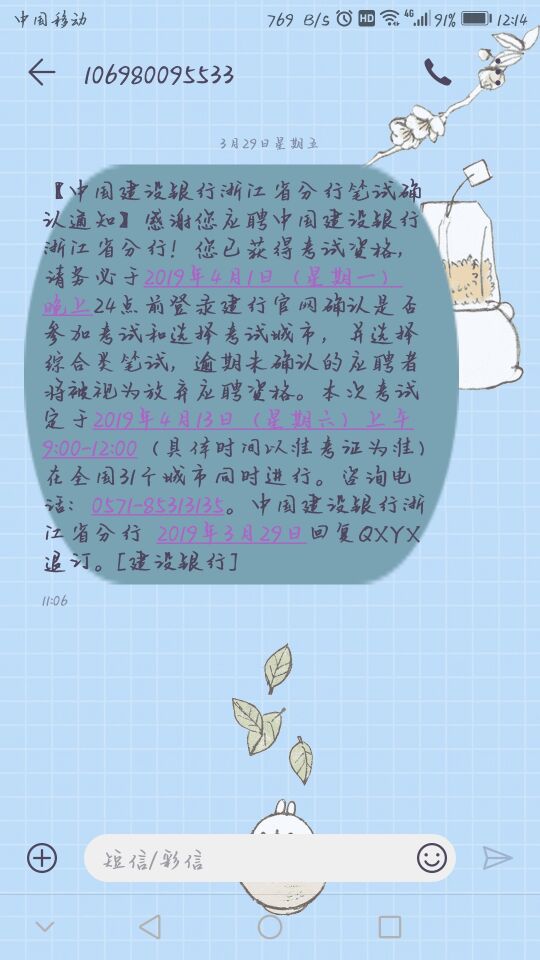 中国移动 769 B/s HD 4G 91% 12:14
106980095533
3月29日星期五
【中国建设银行浙江省分行笔试确
认通知】感谢您应聘中国建设银行
浙江省分行！您已获得考试资格，
请务必于2019年4月1日（星期一）
晚上24点前登录建行官网确认是否
参加考试和选择考试城市，并选择
综合类笔试，逾期未确认的应聘者
将被视为放弃应聘资格。本次考试
定于2019年4月13日（星期六）上午
9:00-12:00（具体时间以准考证为准）
在全国31个城市同时进行。咨询电
话：0571-85313135。中国建设银行浙
江省分行 2019年3月29日回复QXYX
退订。[建设银行]
11:06
短信/彩信